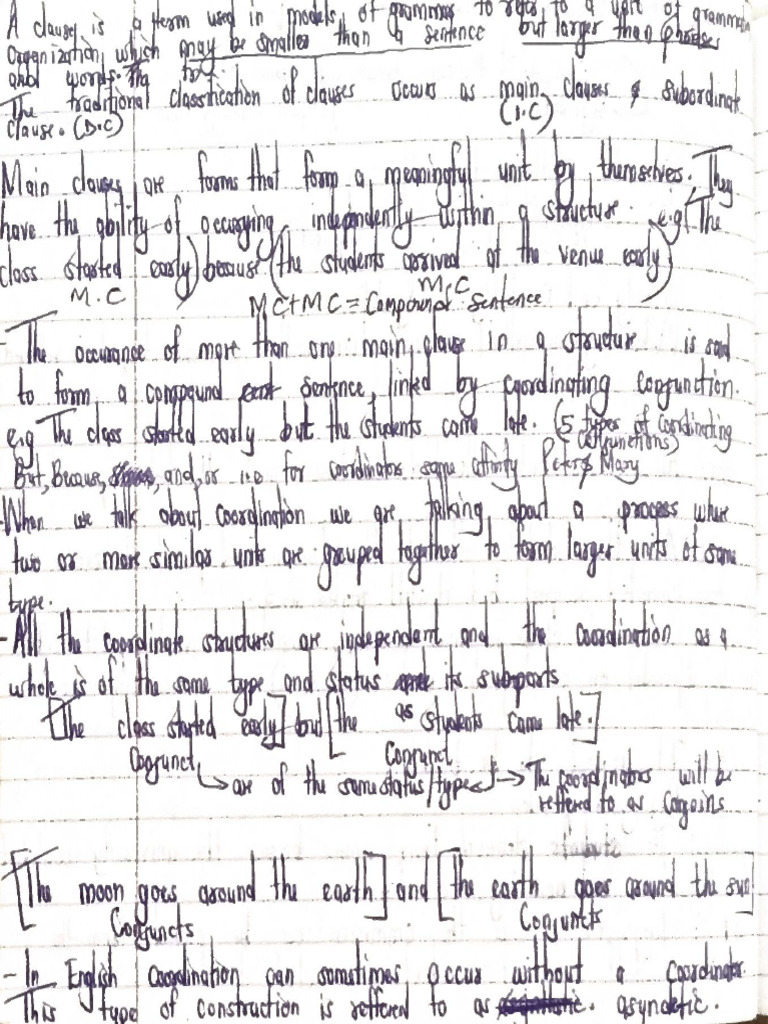 A clause is a term used in models of grammar to refer to a unit of grammar
Organization, which may be smaller than a sentence but larger than phrases
and words.
The traditional classification of clauses occurs as main clauses & subordinate
clause. (D.C) (I.C)
Main clauses are forms that form a meaningful unit by themselves. They
have the ability of occurying independently within a structure. e.g (The
class started early) because (the students arrived at the venue early)
M.C M.C
MC+MC = Compound sentence
- The occurance of more than one main clause in a structure is said
to form a compound sentence, linked by coordinating conjunction.
e.g The class started early but the students came late. (5 types of coordinating
conjunctions)
But, Because, and, or i.e for coordinators same affinity Peter & Mary
- When we talk about coordination we are talking about a process where
two or more similar units are grouped together to form larger units of same
type.
- All the coordinate structures are independent and the coordination as a
whole is of the same type and status as its subparts.
[The class started early] but [the students came late.]
Conjunct Conjunct
→ are of the same status/type → The coordinators will be
reffered to as Conjoins
[The moon goes around the earth] and [the earth goes around the sun]
Conjuncts Conjuncts
- In English Coordination can somstimes occur without a coordinator.
This type of construction is reffered to as asyndetic.